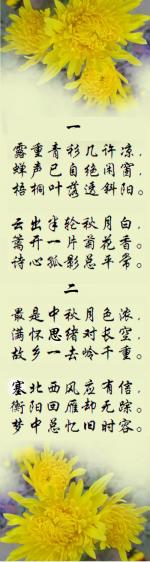 一
露重青衫几许凉，
蝉声已自绝闲窗，
梧桐叶落透斜阳。
云出半轮秋月白，
篱开一片菊花香。
诗心孤影总平常。
二
最是中秋月色浓，
满怀思绪对长空，
故乡一去岭千重。
塞北西风应有信，
衡阳回雁却无踪。
梦中总忆旧时容。